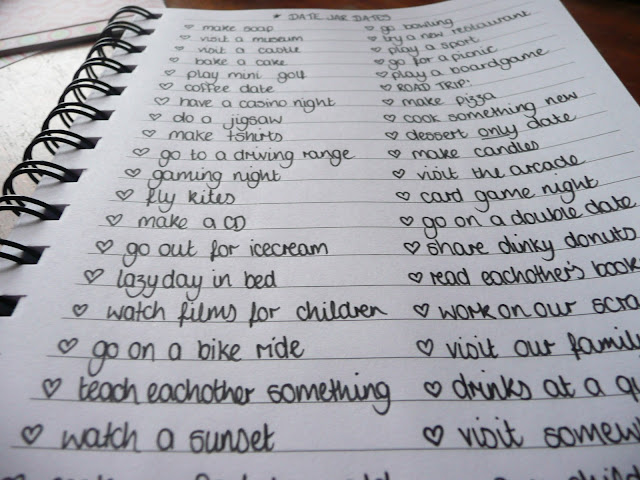 * DATE JAR DATES
♡ make soap
♡ visit a museum
♡ visit a castle
♡ bake a cake
♡ play mini golf
♡ coffee date
♡ have a casino night
♡ do a jigsaw
♡ make t-shirts
♡ go to a driving range
♡ gaming night
♡ fly kites
♡ make a CD
♡ go out for icecream
♡ lazy day in bed
♡ watch films for children
♡ go on a bike ride
♡ teach eachother something
♡ watch a sunset
♡ go bowling
♡ try a new restaurant
♡ play a sport
♡ go for a picnic
♡ play a boardgame
♡ ROAD TRIP!
♡ make pizza
♡ cook something new
♡ dessert only date
♡ make candles
♡ visit the arcade
♡ card game night
♡ go on a double date
♡ share dinky donuts
♡ read eachother's book
♡ work on our scra
♡ visit our famil
♡ drinks at a
♡ visit somew